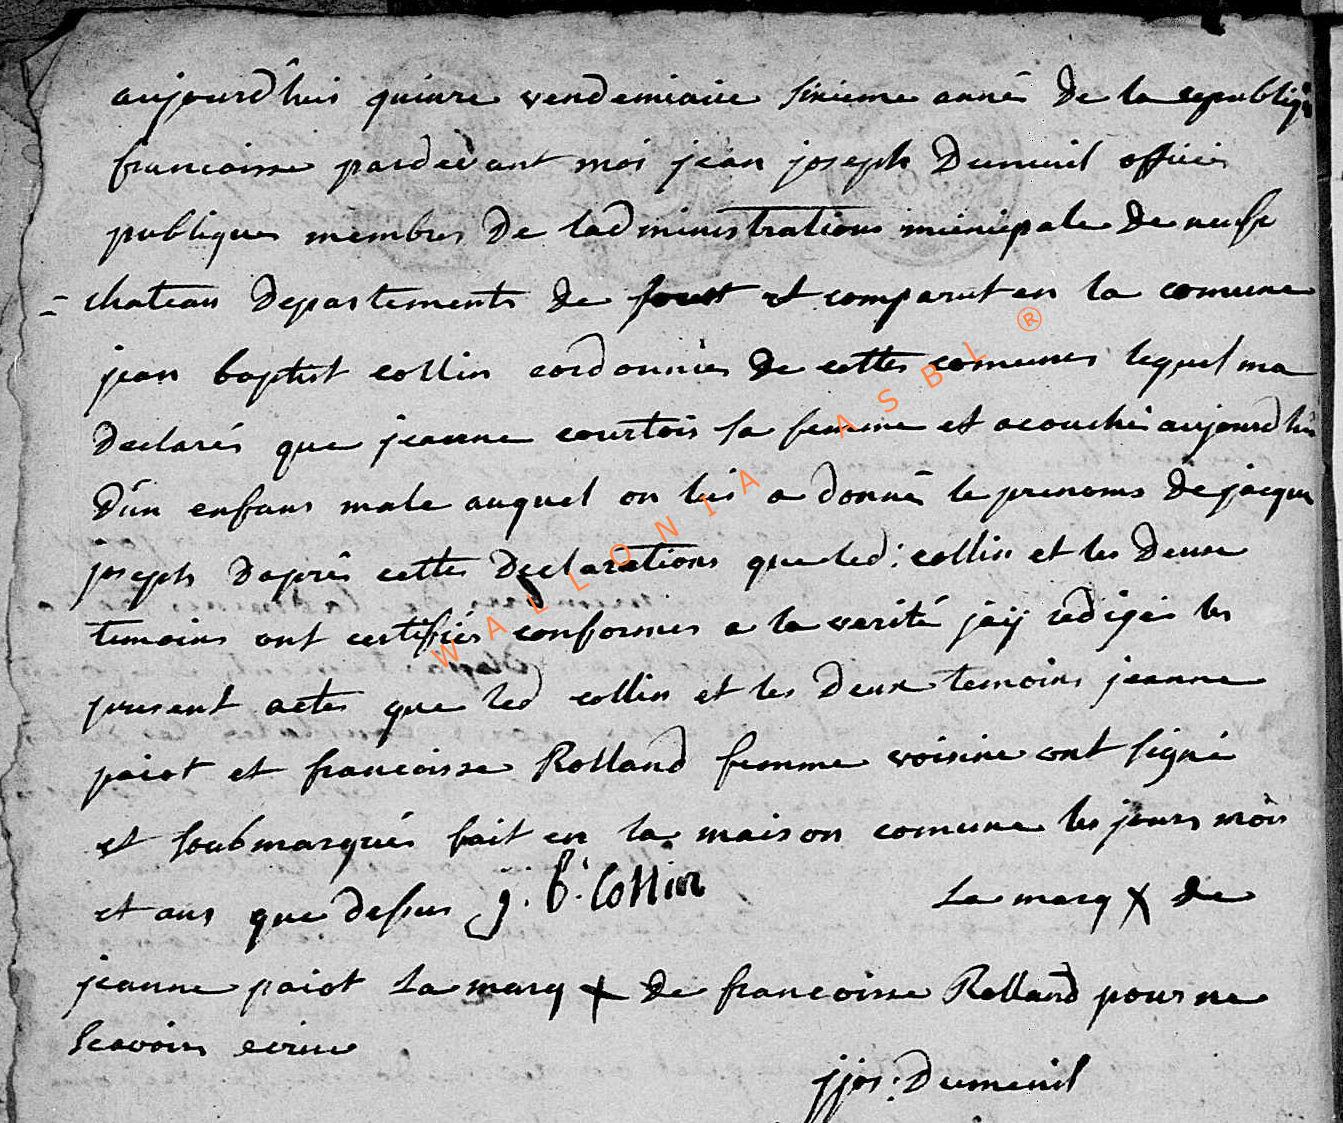 aujourd'huis quinze vendemiaire sixieme anné de la republiq
francoisse pardevant moi jean joseph Dumeuil officier
publiques membres de ladministrations municipale de neufs
= chateau departements de forest et comparut en la comune
jean baptist collin cordonnier de cettes comunes lequel ma
declarés que jeanne courtois sa femme et acouchés aujourd'hui
d'un enfans male auquel on luis a donné le prenoms de jacque
joseph daprès cettes declarations que led: collin et les deux
temoins ont certifiés conformes a la verité jaÿ redigés les
present actes que led collin et les deux temoins jeanne
paiot et francoisse Rolland femme voisine ont signé
et soubmarqués fait en la maison comune les jours mois
et ans que dessus j. b. Collin La marq X de
jeanne paiot La marq X de francoisse Rolland pour ne
scavoir ecrire
jjos: Dumeuil
WALLONIA ASBL ®